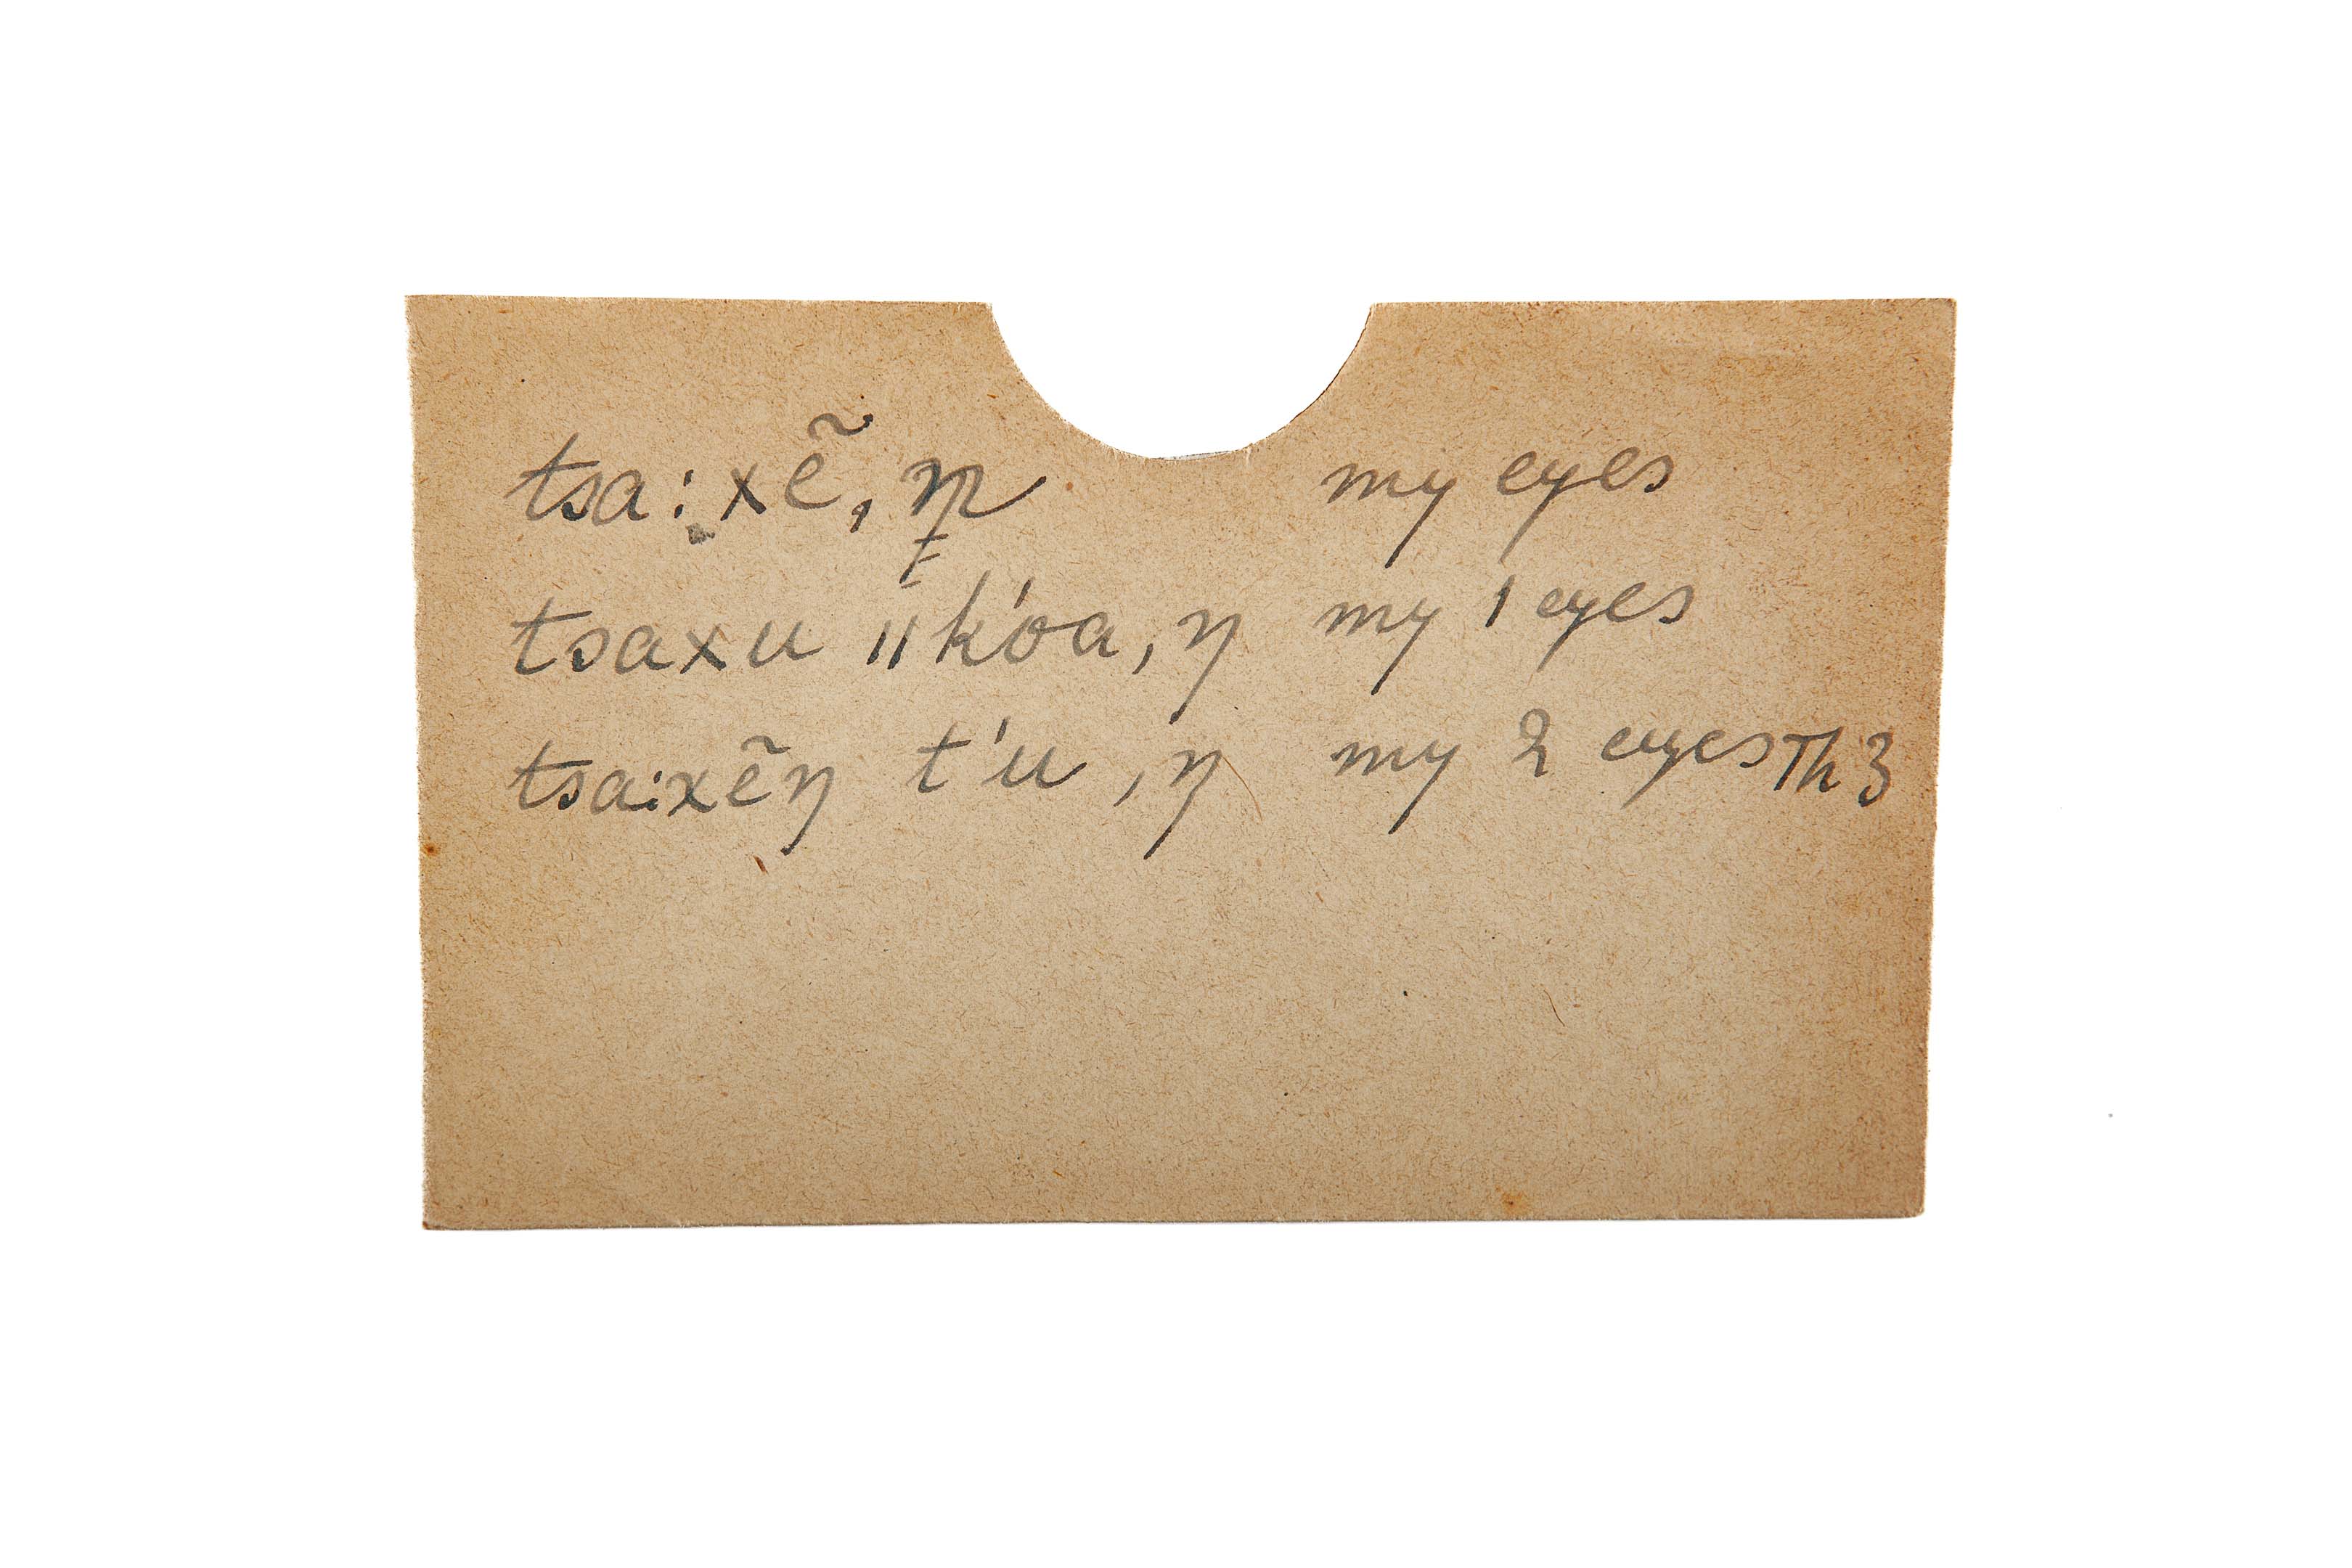 tsa:xẽ, ŋ my eyes
tsaxu ǁk'oa, ŋ my 1 eyes
tsa:xẽŋ t'u, ŋ my 2 eyes Th 3